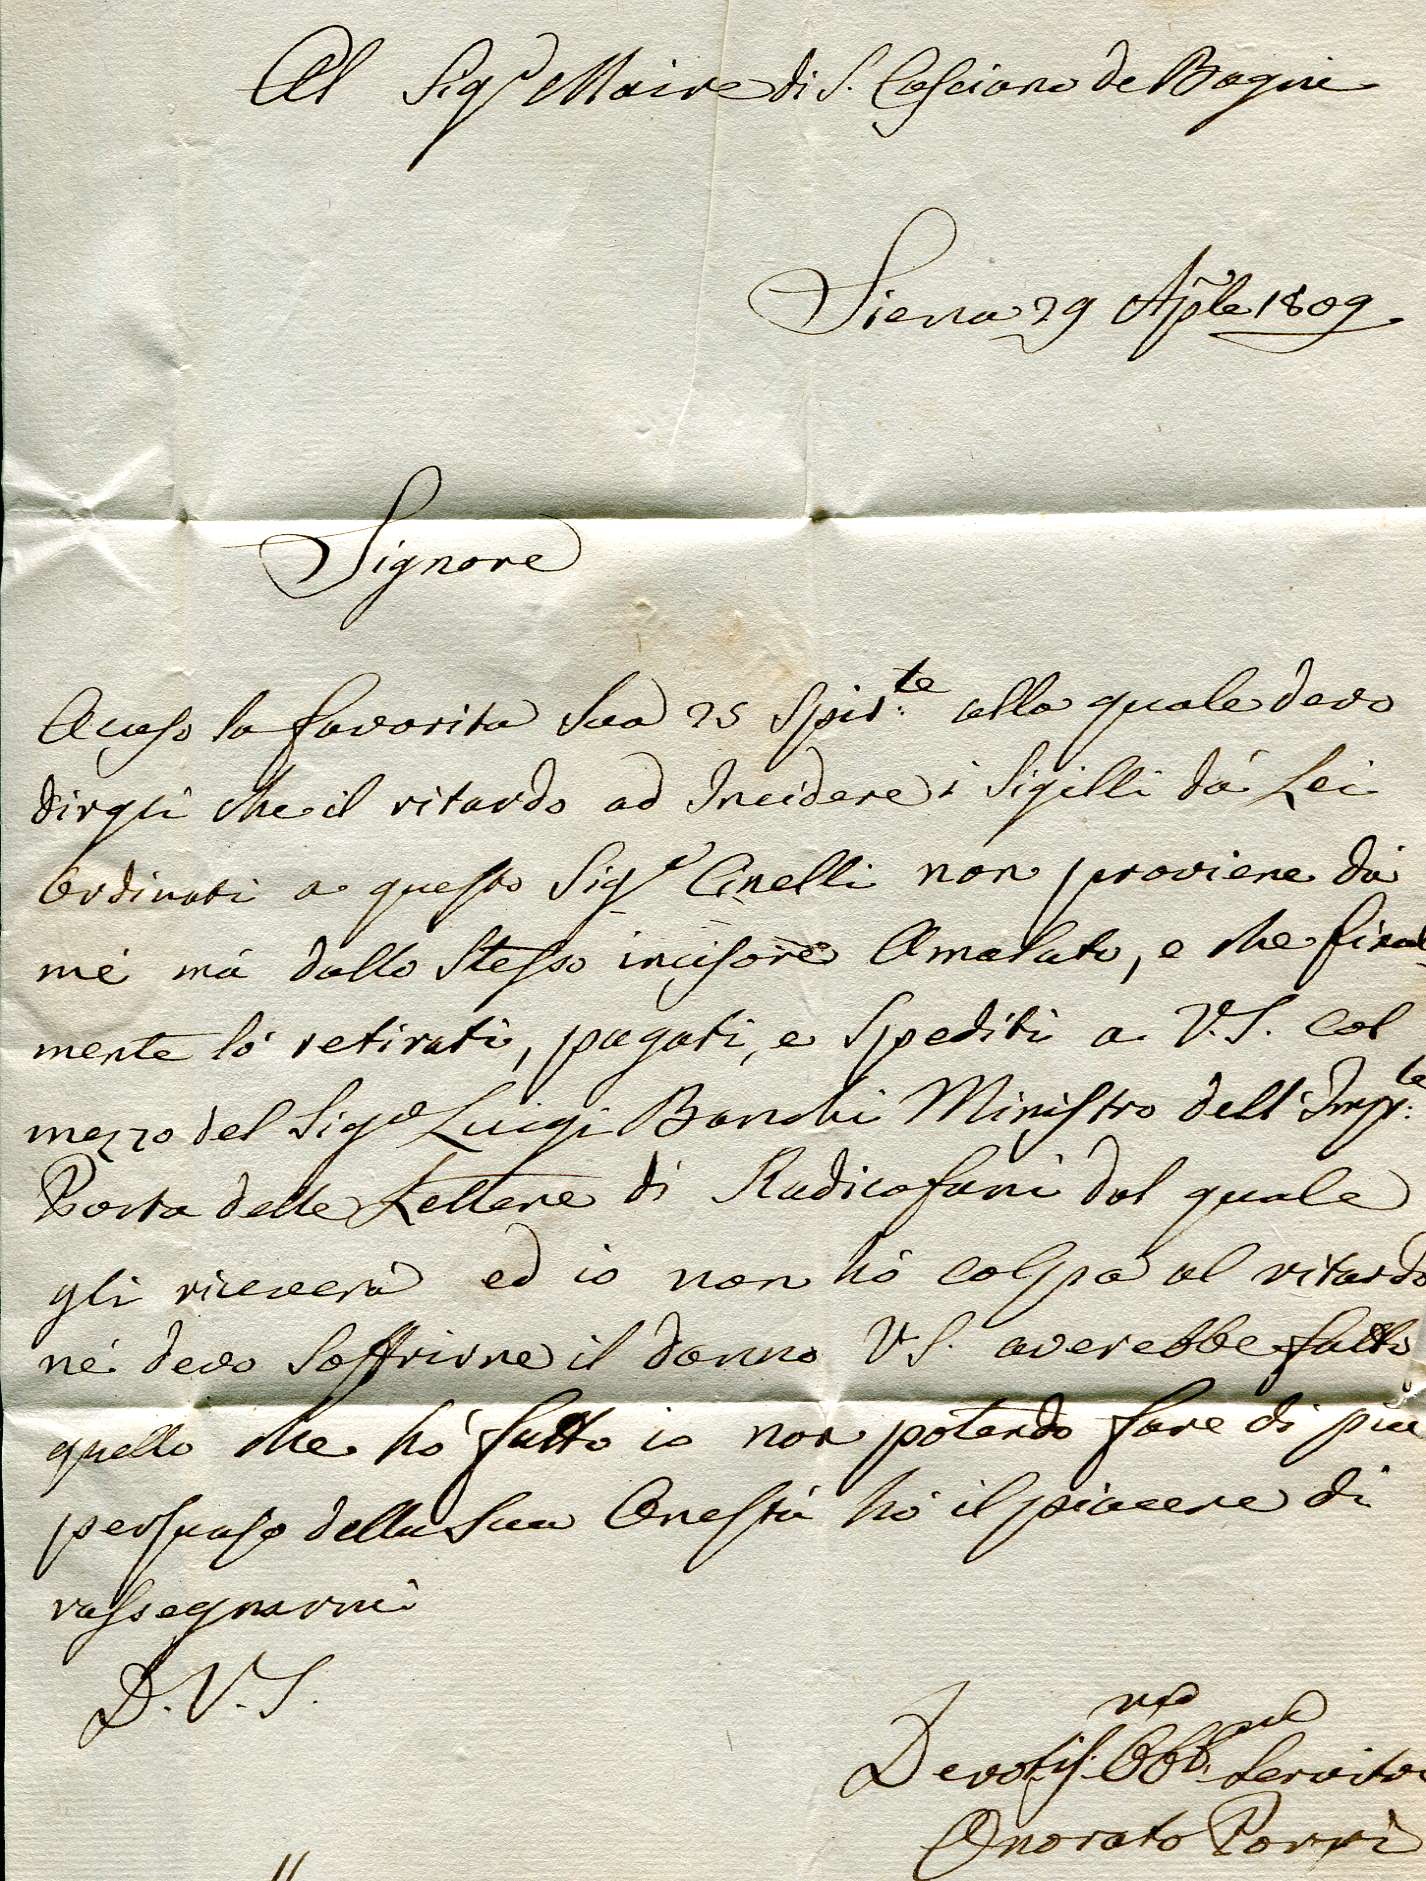 Al Sig.r Maire di S. Casciano de Bagni
Siena 29 Aple 1809
Signore
Acuso la favorita Sua 25 Spir.te alla quale devo
dirgli che il ritardo ad Incidere i Sigilli dà Lei
Ordinati a questo Sig.r Cinelli non proviene dà
mè mà dallo Stesso incisore Amalato, e che final
mente lò retirati, pagati, e Spediti a V.S. col
mezzo del Sig.e Luigi Banchi Ministro dell' Imp.le
Posta delle Lettere di Radicofani dal quale
gli riceverà ed io non hò colpa al ritardo
nè devo Soffrirne il danno V.S. averebbe fatto
quello che hò fatto io non potendo fare di piu
persuaso della Sua Onestà hò il piacere di
rassegnarmi
D. V. S.
Devotis.mo Obb.mo Servitor
Onorato Porri